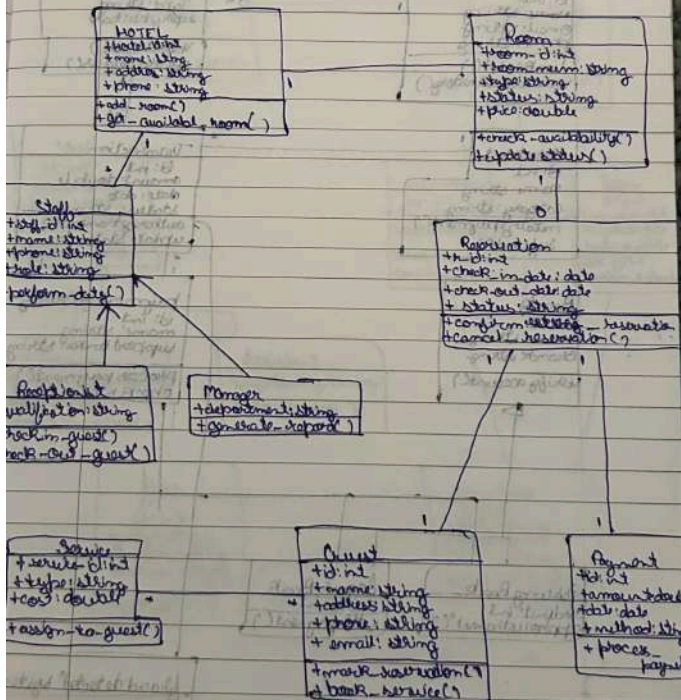 HOTEL
+hotel-id:int
+name: string
+address: string
+phone: string
+add_room()
+get_availabl_room()
1
1
*
Room
+room-id:int
+room_num: string
+type: string
+status: string
+price: double
+check_availability()
+update status()
1
0
Staff
+staff_id: int
+name: string
+phone: string
+role: string
perform_duty()
Reservation
+r_id: int
+check_in_date: date
+check-out-date: date
+ status: string
+confirm _reservatio
+cancel_reservation()
1
1
Receptionist
ualification: string
heck_in_guest()
heck_out_guest()
Manager
+department: string
+generate_report()
Service
+service-id:int
+type: string
+cost: double
+assign-to-guest()
*
*
1
Guest
+id: int
+name: string
+address: string
+phone: string
+ email: string
+mark_reservation()
+book_service()
1
Payment
+id: int
+amount: doub
+date: date
+method: stri
+ proces_
payme